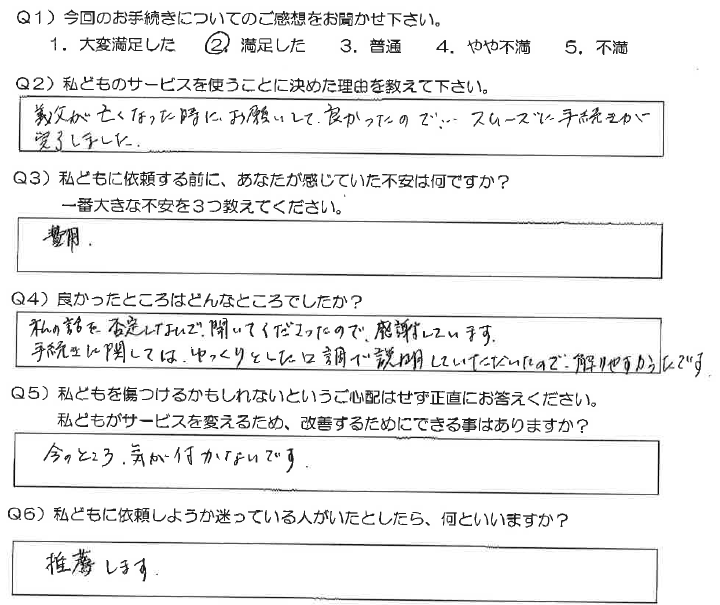 Q1）今回のお手続きについてのご感想をお聞かせ下さい。
1．大変満足した　②．満足した　3．普通　4．やや不満　5．不満
Q2）私どものサービスを使うことに決めた理由を教えて下さい。
義父が亡くなった時に、お願いして、良かったので… スムーズに手続きが
完了しました．
Q3）私どもに依頼する前に、あなたが感じていた不安は何ですか？
一番大きな不安を３つ教えてください。
費用．
Q4）良かったところはどんなところでしたか？
私の話を否定しないで、聞いてくださったので、感謝しています．
手続きに関しては、ゆっくりとした口調で説明していただいたので、解りやすかったです．
Q5）私どもを傷つけるかもしれないというご心配はせず正直にお答えください。
私どもがサービスを変えるため、改善するためにできる事はありますか？
今のところ、気が付かないです．
Q6）私どもに依頼しようか迷っている人がいたとしたら、何といいますか？
推薦します．